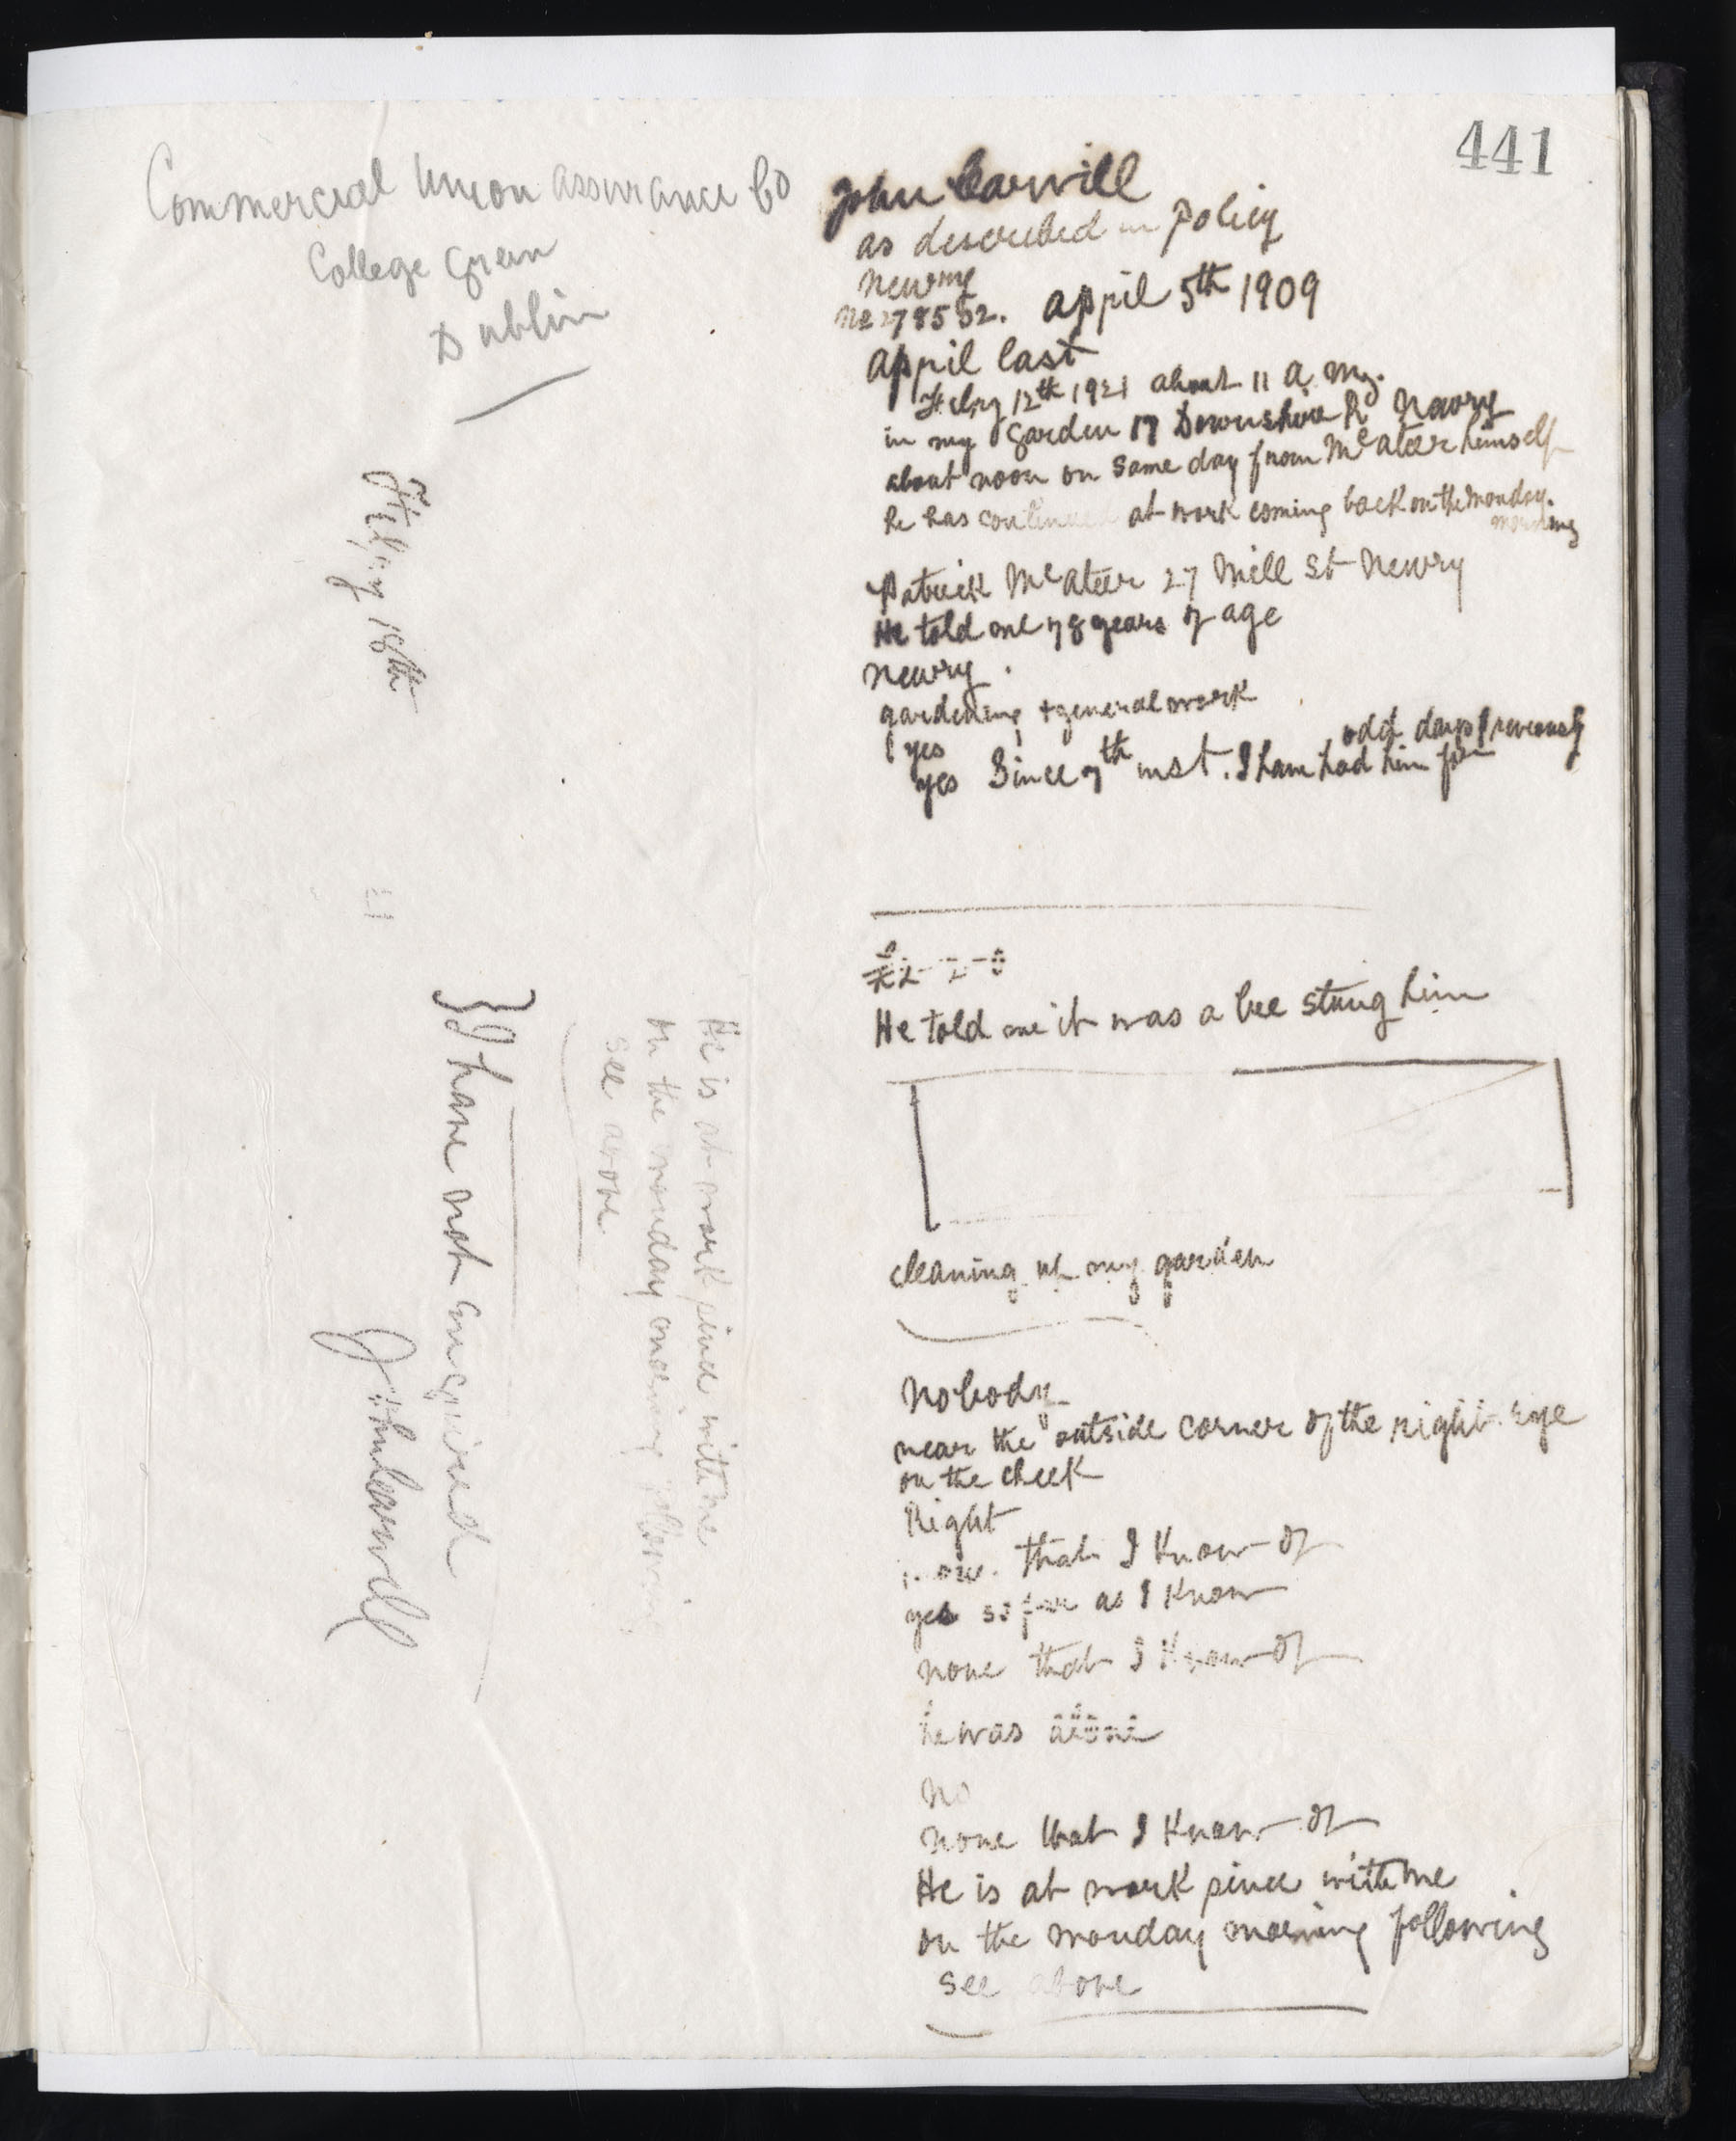 441
Commercial Union Assurance Co
College Green
Dublin
John Carvill
as described in Policy
Newry
No 278552. April 5th 1909
April last
Feby 12th 1921 about 11 a.m.
in my garden 17 Downshire Rd Newry
about noon on same day from McAteer himself
he has continued at work coming back on the Monday
morning
Patrick McAteer 27 Mill St Newry
He told me 78 years of age
Newry.
gardening + general work
yes
odd days previously
yes Since 7th inst. I have had him for
He told me it was a bee stung him
cleaning up my garden
Nobody
near the outside corner of the right eye
on the cheek
Right
none that I know of
yes so far as I know
none that I know of
he was alone
No
none that I know of
He is at work since with me
on the monday morning following
see above
Feby 18th
21
He is at work since with me
on the monday morning following
see above
} I have not enquired
John Carvill